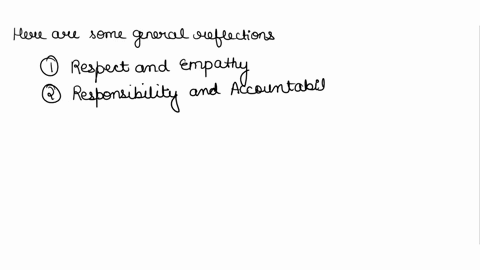 Here are some general reflections
① Respect and Empathy
② Responsibility and Accountabil